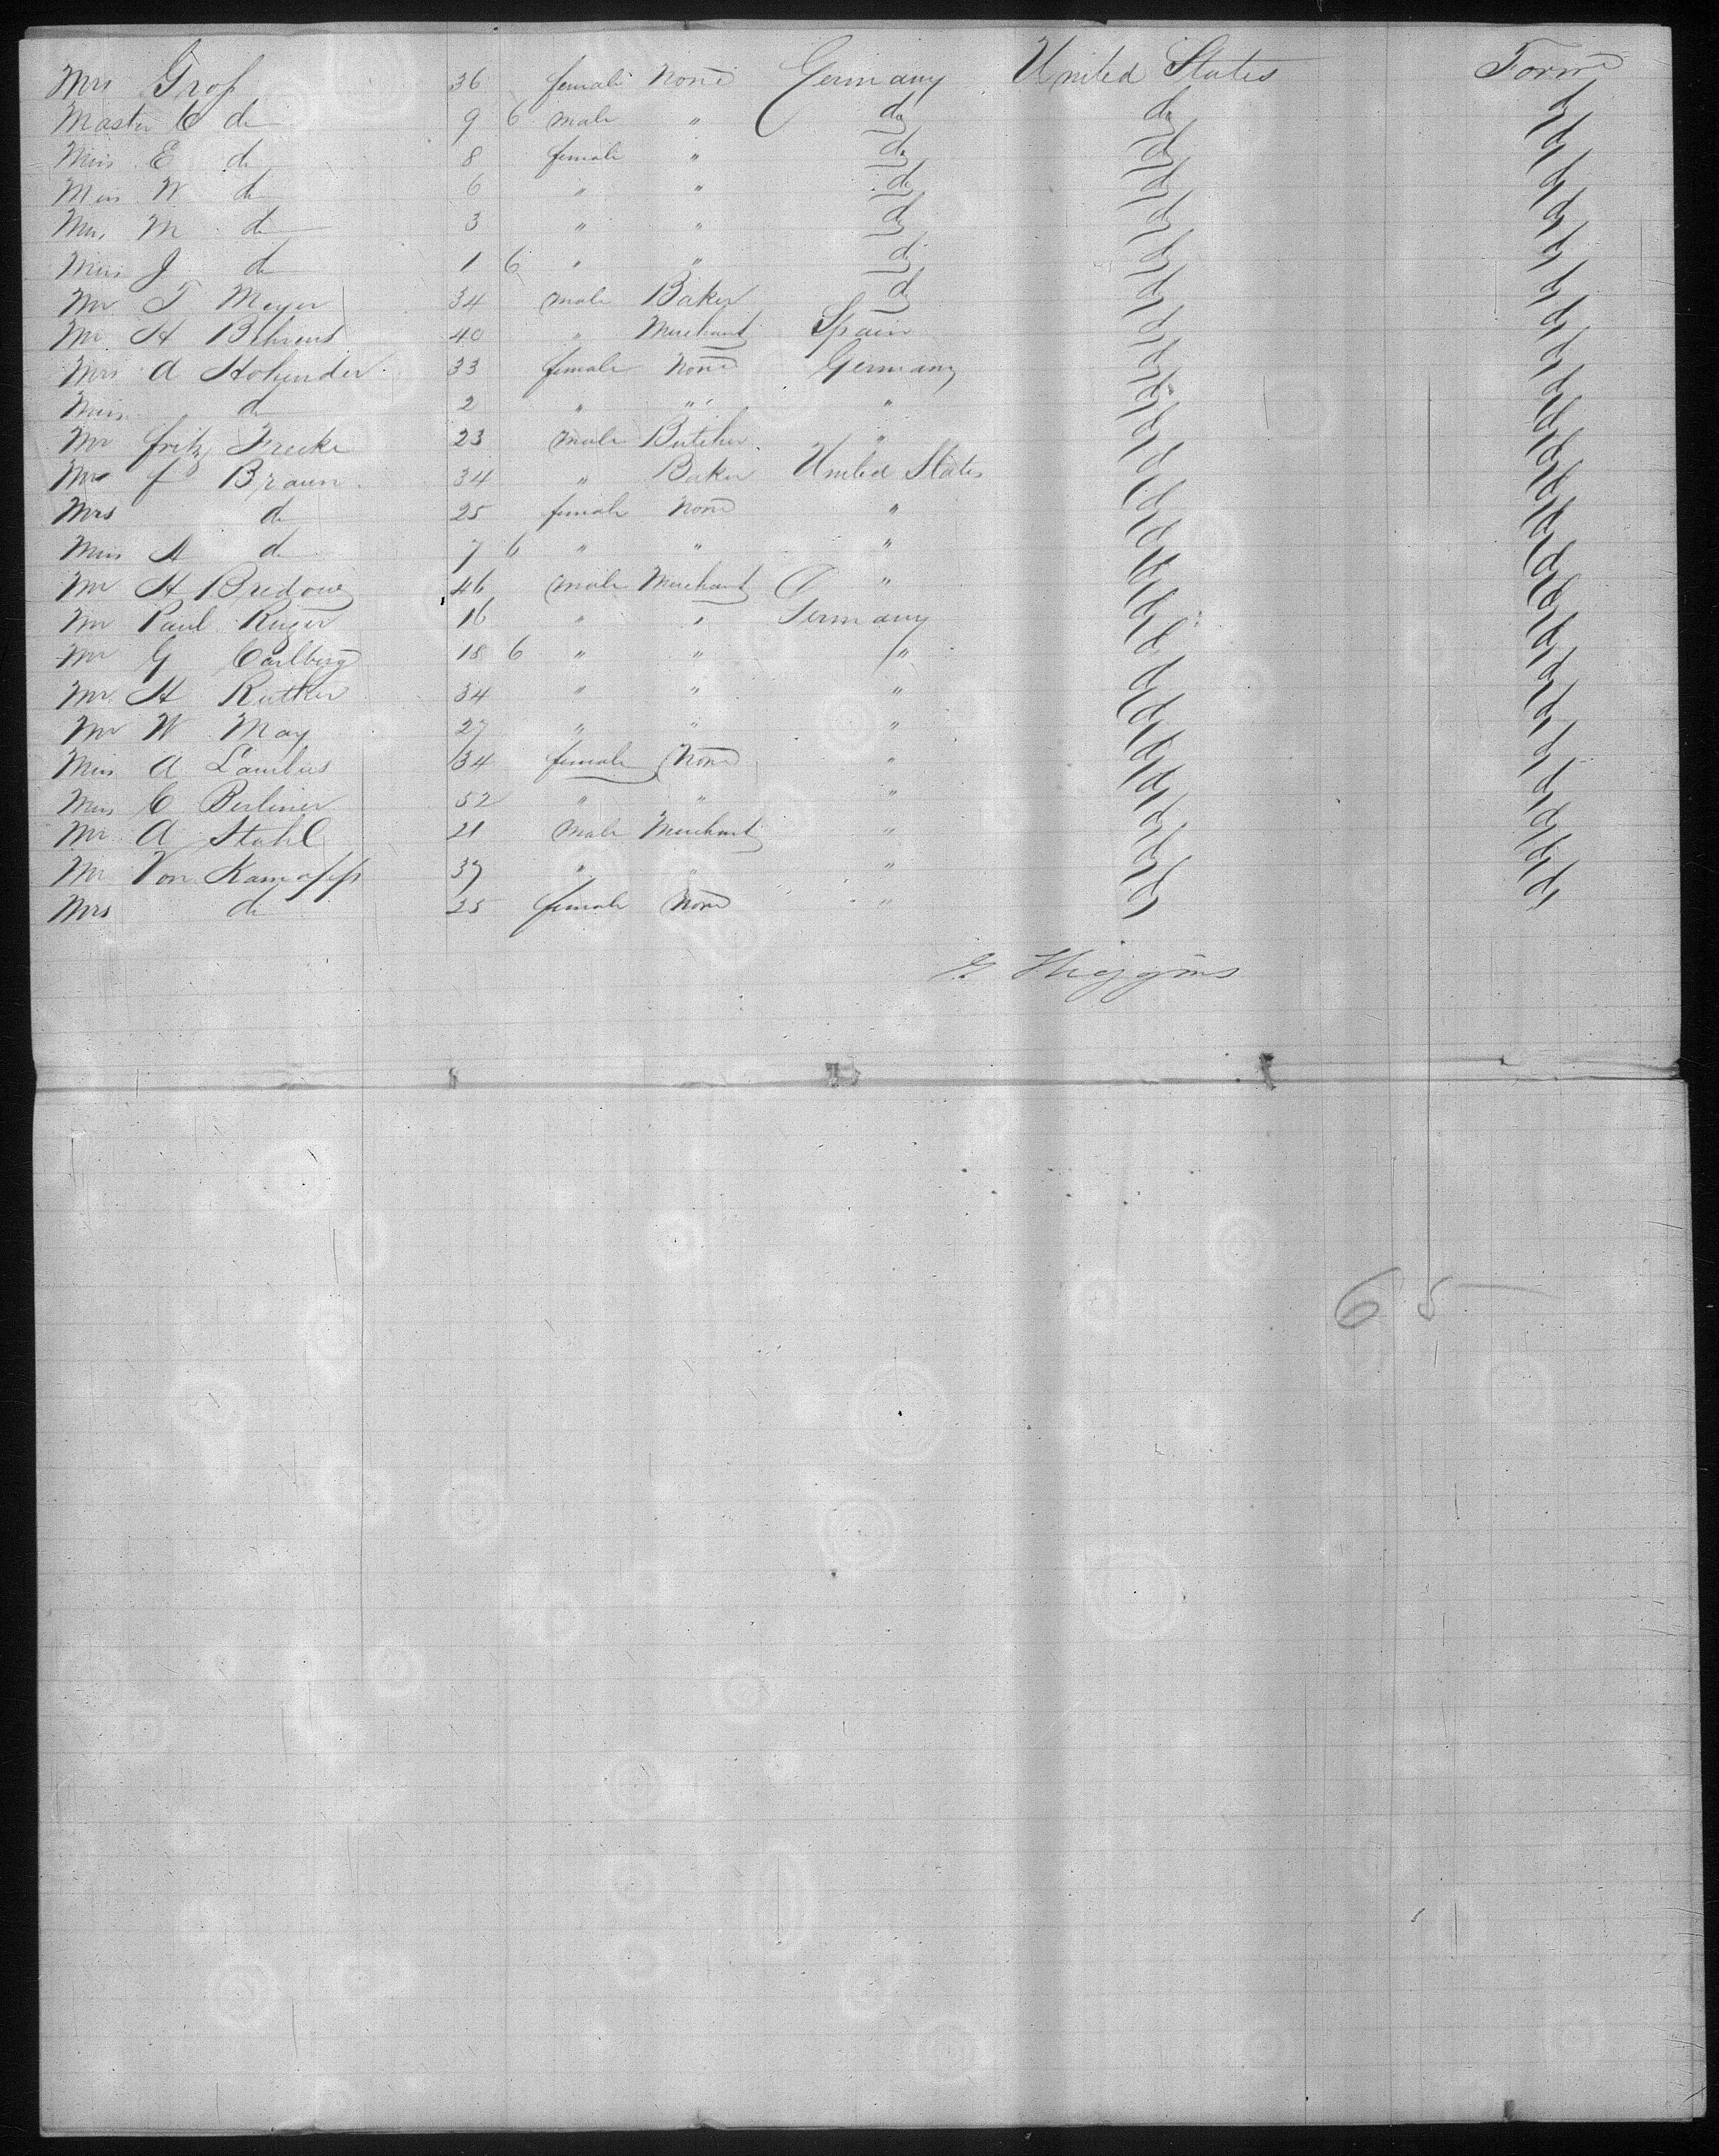 Mrs Grof 36 female None Germany United States Torn
Master C do 9 6 male " do do do
Miss E do 8 female " do do do
Miss W do 6 " " do do do
Miss M do 3 " " do do do
Miss J do 1 6 " " do do do
Mr T Meyer 34 male Baker do do do
Mr H Behrens 40 " Merchant Spain do do
Mrs A 33 female None Germany do do
Miss do 2 " " " do do
Mr Fritz Frecke 23 male Butcher " do do
Mr f Braun 34 " Baker United States do do
Mrs do 25 female None " do do
Miss A do 7 6 " " " do do
Mr H Bredow 46 male Merchant " do do
Mr Paul Ruger 16 " " Germany do do
Mr G Carlberg 18 6 " " " do do
Mr H Rutker 34 " " " do do
Mr W May 27 " " " do do
Miss A 34 female None " do do
Miss C Berliner 52 " " " do do
Mr A Stahl 21 male Merchant " do do
Mr Von 37 " " " do do
Mrs do 25 female None " do do
Higgins
65